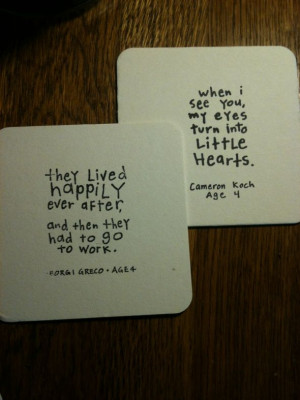 when i
see you,
my eyes
turn into
LittLe
Hearts.
Cameron Koch
Age 4
they Lived
happiLy
ever after,
and then they
had to go
to work.
GRECO • AGE 4